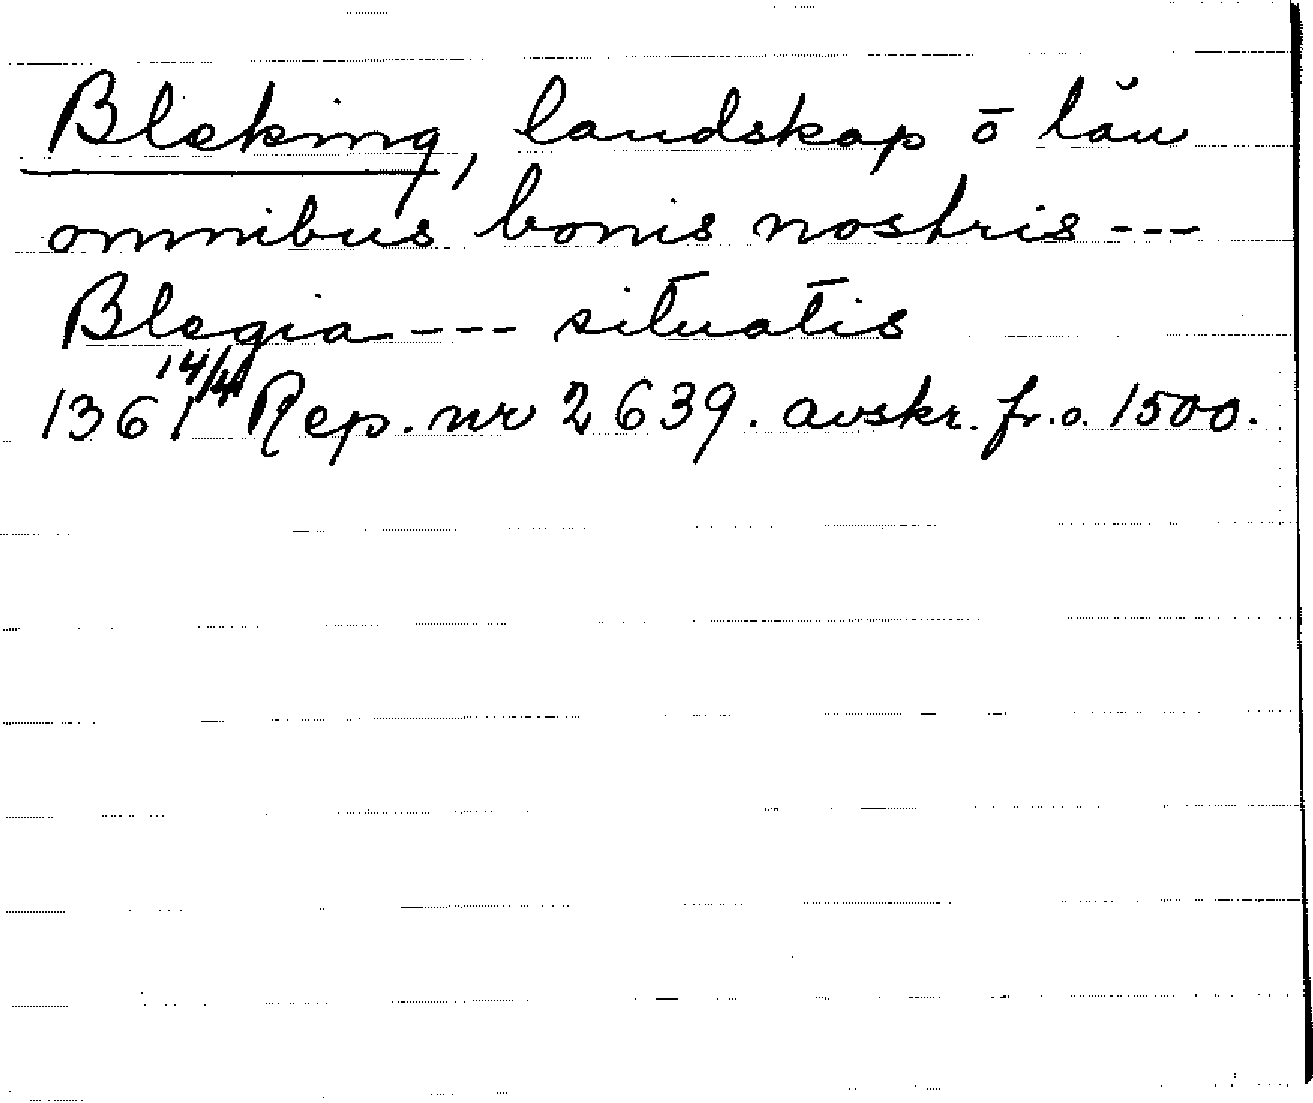 Bleking, landskap ō län
omnibus bonis nostris ---
Blegia --- situatis
1361 14/4 Rep. nr 2639. avskr. fr. o. 1500.